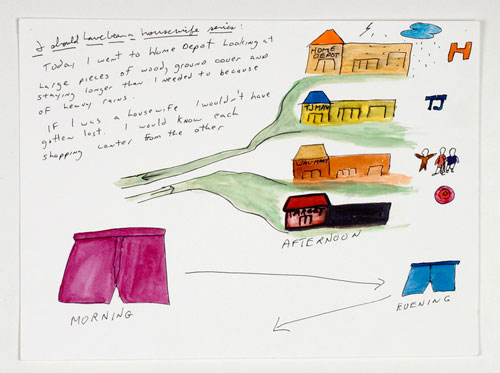 I should have been a housewife series:
Today I went to Home Depot looking at
large pieces of wood, ground cover and
staying longer than I needed to because
of heavy rains.
IF I was a housewife I wouldn't have
gotten lost. I would know each
shopping center from the other
HOME
DEPOT
H
TJ MAX
TJ
WAL-MART
TARGET
AFTERNOON
MORNING
EVENING